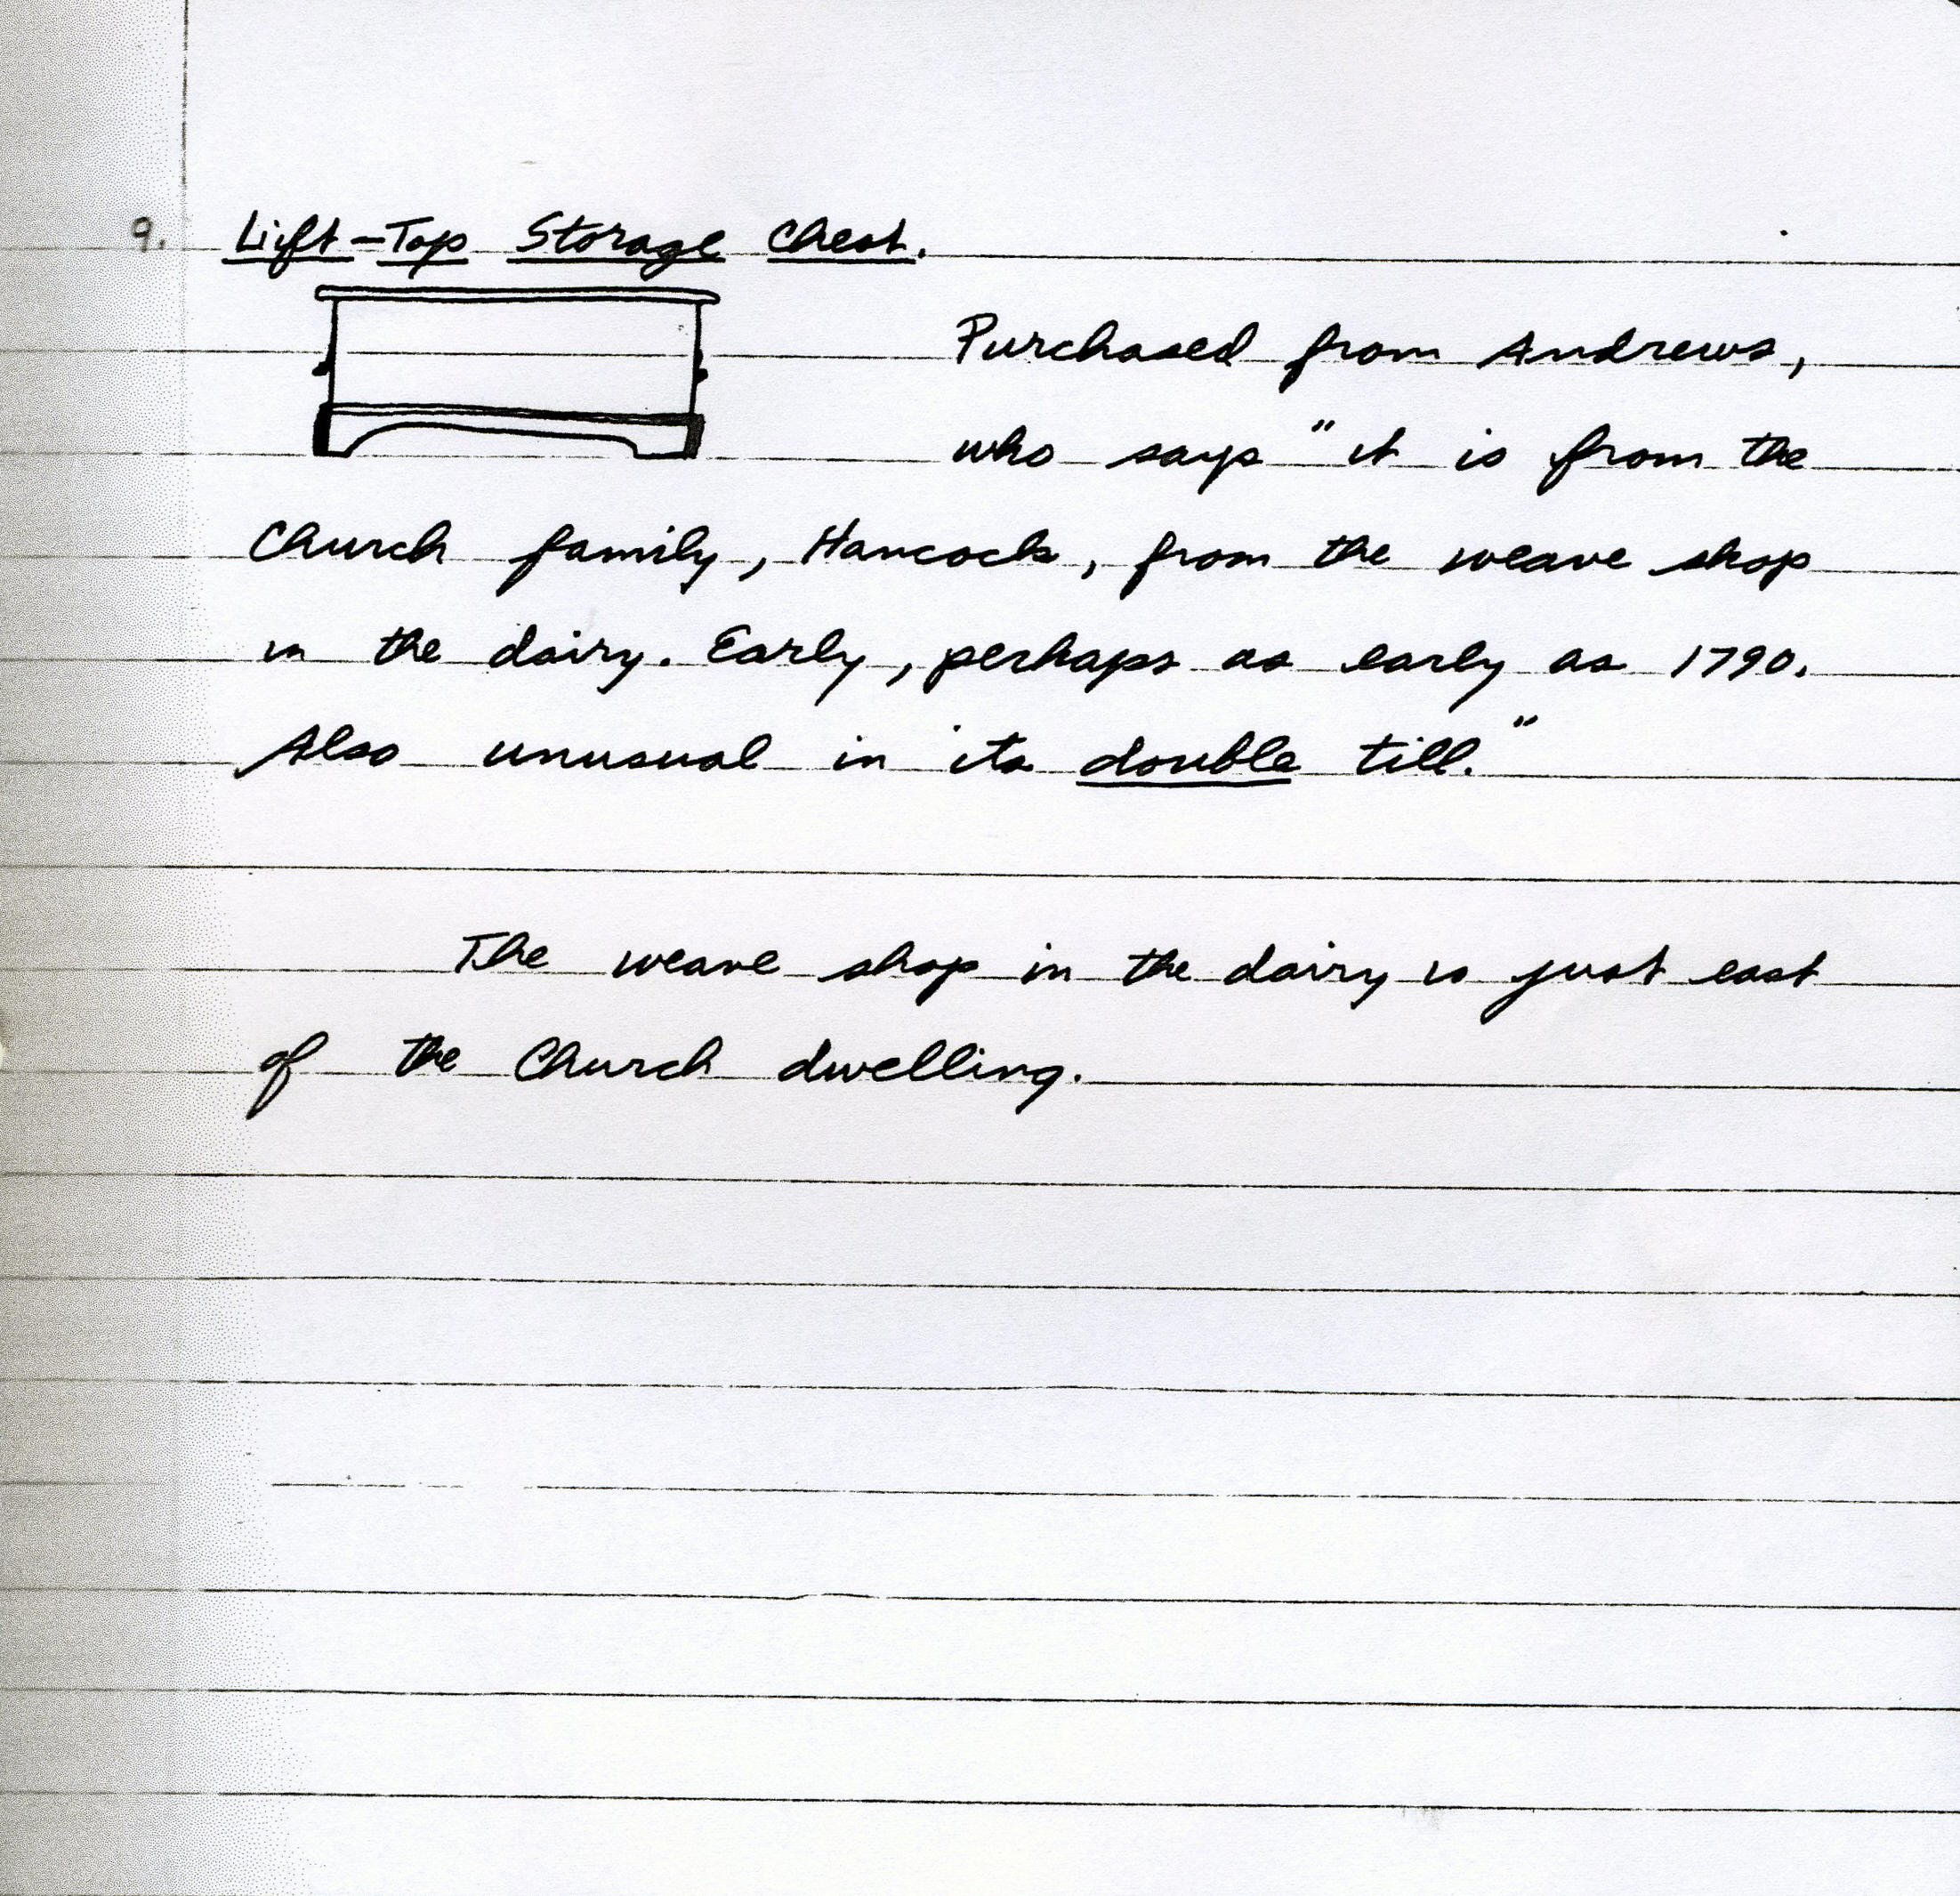 9. Lift-Top Storage Chest.
Purchased from Andrews,
who says "it is from the
Church family, Hancock, from the weave shop
in the dairy. Early, perhaps as early as 1790.
Also unusual in its double till."
The weave shop in the dairy is just east
of the Church dwelling.